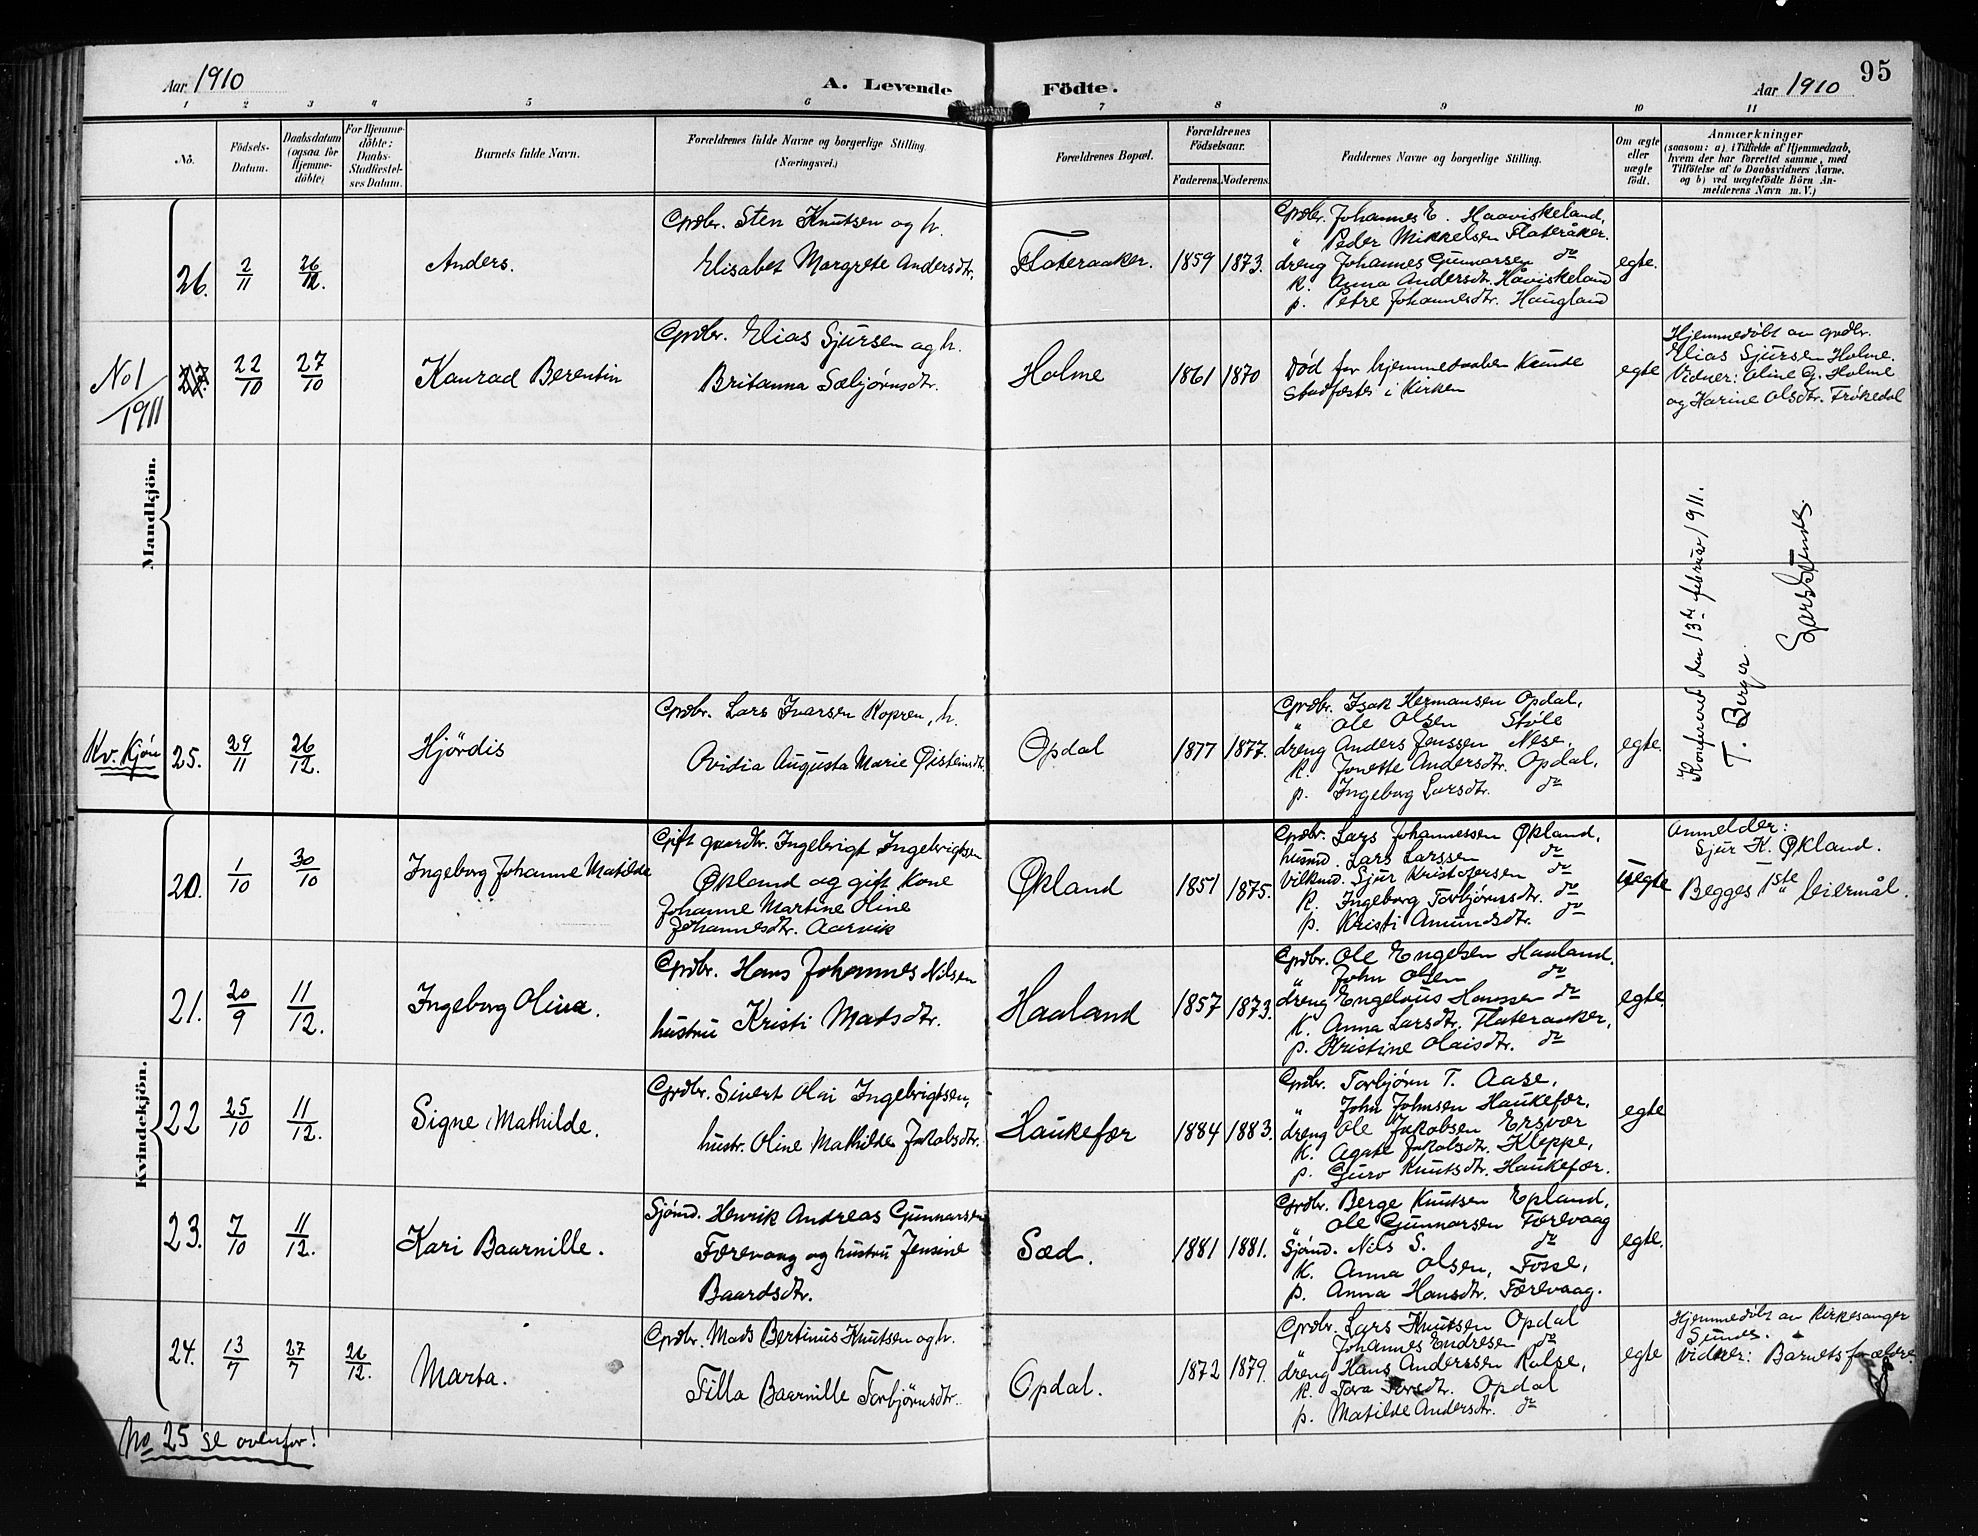 Aar 1910
A. Levende Födte.
Aar 1910
95
1 2 3 4 5 6 7 8 9 10 11
No.
Födsels-Datum.
Daabsdatum (ogsaa for Hjemme-döbte)
For Hjemme-döbte: Daabs-Stadfæstel-ses Datum.
Barnets fulde Navn.
Forældrenes fulde Navne og borgerlige Stilling (Næringsvei.)
Forældrenes Bopæl.
Forældrenes Födselsaar.
Faderens. Moderens.
Faddernes Navne og borgerlige Stilling.
Om ægte eller uægte födt.
Anmærkninger
(saasom: a) i Tilfælde af Hjemmedaab, hvem der har forrettet samme, med Tilföielse af to Daabsvidners Navne. og b) ved uægtefödte Börn An-melderens Navn m. V.)
Mandkjön.
26.
2/11
26/12.
Anders.
Grdbr. Sten Knutsen og h.
Elisabet Margrete Andersdtr.
Flateraaker.
1859 1873.
Grdbr. Johannes E. Haaviskeland,
" Peder Mikkelsen Flateråker.
dreng Johannes Gunnarsen do
k. Anna Andersdtr. Håviskeland
p. Petre Johannesdtr. Haugland
egte.
No 1/1911
27.
22/10
27/10
Konrad Berentin
Grdbr. Elias Sjursen og h.
Britanna Sæbjørnsdtr.
Holme
1861 1870
Død før hjemmedaaben kunde
stadfæstes i Kirken
egte
Hjemmedøbt av grdbr.
Elias Sjursen Holme.
Vidner: Oline G. Holme
og Karine Olsdtr. Frøkedal
Konfereret den 13de februar 1911.
T. Berger.
Kv. Kjøn
25.
29/11
26/12.
Hjördis
Grdbr. Lars Ivarsen Kopren, h.
Ovidia Augusta Marie Øisteinsdtr.
Opdal
1877 1877.
Grdbr. Isak Hermansen Opdal,
" Ole Olsen Støle
dreng Anders Jenssen Nese,
k. Jonette Andersdtr. Opdal,
p. Ingeborg Larsdtr. do
egte.
Kvindekjön.
20.
1/10
30/10
Ingeborg Johanne Matilde
Gift gaardbr. Ingebrigt Ingebrigtsen
Økland og gift Kone
Johanne Martine Oline
Johannesdtr. Aarvik
Økland
1851 1875.
Grdbr. Lars Johannessen Økland,
husmd. Lars Larssen do
Vilkmd. Sjur Kristofersen do
k. Ingeborg Torbjørnsdtr. do
p. Kristi Amundsdtr. do
uegte
Anmelder:
Sjur K. Økland.
Begges 1ste leiermål.
21.
20/9
11/12.
Ingeborg Olina.
Grdbr. Hans Johannes Nilsen
hustru Kristi Madsdtr.
Haaland
1857 1873.
Grdbr. Ole Engelsen Haaland.
" John Olsen do
dreng Engelous Hanssen do
k. Anna Larsdtr. Flateraaker,
p. Kristine Olaisdtr. do
egte.
22
25/10
11/12.
Signe Mathilde.
Grdbr. Sivert Olai Ingebrigtsen,
hustr. Oline Mathilde Jakobsdtr.
Haukefær
1884 1883.
Grdbr. Torbjørn T. Aase,
" John Johnsen Haukefær,
dreng Ole Jakobsen Ersvær
k. Agate Jakobsdtr. Kleppe,
p. Guro Knutsdtr. Haukefær.
egte
23.
7/10
11/12.
Kari Baarnille.
Sjømd. Henrik Andreas Gunnarsen
Færevaag og hustru Jensine
Baardsdtr.
Sæd.
1881 1881.
Grdbr. Berge Knutsen Epland,
" Ole Gunnarsen Færevaag
Sjømd. Nils S. do
k. Anna Olsen, Fosse,
p. Anna Hansdtr. Færevaag.
egte.
24.
13/7
27/7
26/12.
Marta.
Grdbr. Mads Bertinus Knutsen og h.
Filla Baarnille Torbjørnsdtr.
Opdal.
1872 1879.
Grdbr. Lars Knutsen Opdal
" Johannes Endresen do
dreng Hans Anderssen Rolse,
k. Tora Torsdtr. Opdal
p. Matilde Andersdtr. do
egte
Hjemmedøbt av Kirkesanger
Vidner: Barnets forældre
No 25 se ovenfor!